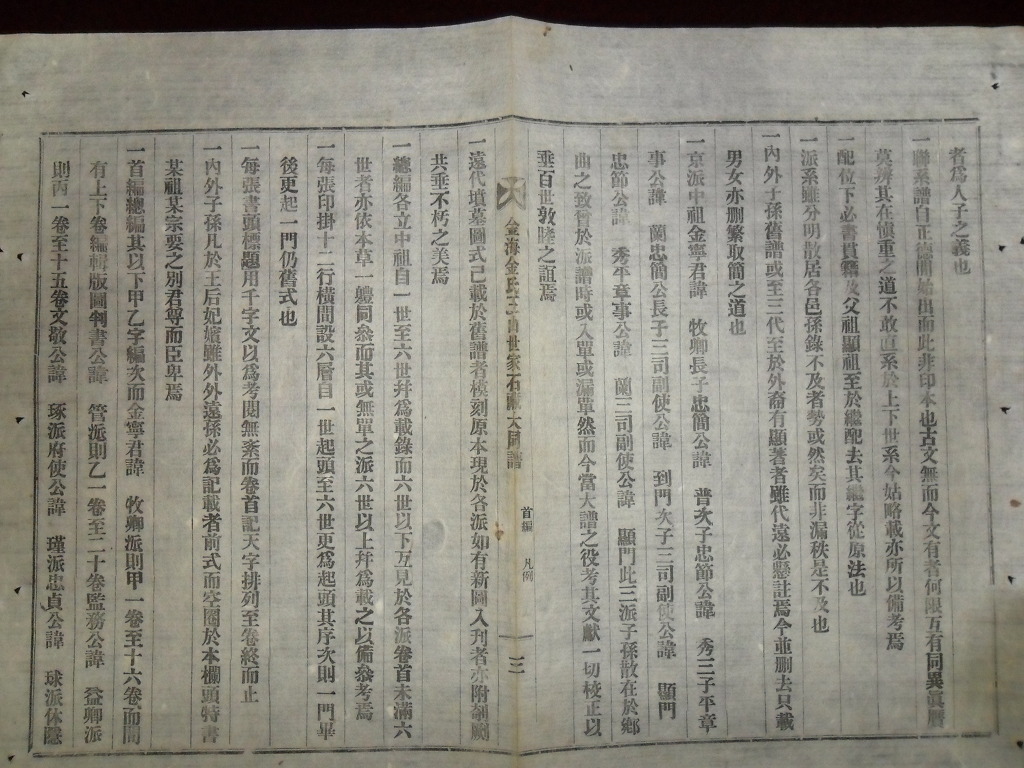 者爲人子之義也
一聯系譜自正德間始出而此非印本也古文無而今文有者何限互有同異眞贋
莫辨其在愼重之道不敢直系於上下世系今姑略載亦所以備考焉
一配位下必書貫籍及父祖顯祖至於繼配去其繼字從原法也
一派系雖分明散居各邑孫錄不及者勢或然矣而非漏秩是不及也
一內外子孫舊譜或至三代至於外裔有顯著者雖代遠必懸註焉今並刪去只載
男女亦刪繁取簡之道也
一京派中祖金寧君諱 牧卿長子忠簡公諱 普次子忠節公諱 秀三子平章
事公諱 蘭忠簡公長子三司副使公諱 到門次子三司副使公諱 顯門
忠節公諱 秀平章事公諱 蘭三司副使公諱 顯門此三派子孫散在於鄕
曲之致曾於派譜時或入單或漏單然而今當大譜之役考其文獻一切校正以
垂百世敦睦之誼焉
金海金氏三百世家石藏大同譜 首編 凡例 三
一遠代墳墓圖式已載於舊譜者模刻原本現於各派如有新圖入刊者亦附剞劂
共垂不朽之美焉
一總編各立中祖自一世至六世幷爲載錄而六世以下互見於各派卷首未滿六
世者亦依本草一軆同叅而其或無單之派六世以上幷爲載之以備叅考焉
一每張印掛十二行橫間設六層自一世起頭至六世更爲起頭其序次則一門畢
後更起一門仍舊式也
一每張書頭標題用千字文以爲考閱無紊而卷首記天字排列至卷終而止
一內外子孫凡於王后妃嬪雖外外遠孫必爲記載者前式而空圈於本欄頭特書
某祖某宗要之別君尊而臣卑焉
一首編總編其以下甲乙字編次而金寧君諱 牧卿派則甲一卷至十六卷而間
有上下卷編輯版圖判書公諱 管派則乙一卷至二十卷監務公諱 益卿派
則丙一卷至十五卷文敬公諱 琢派府使公諱 瑾派忠貞公諱 球派休隱